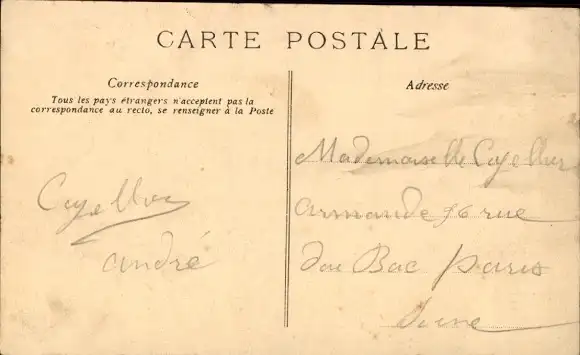 CARTE POSTALE
Correspondance
Tous les pays étrangers n'acceptent pas la
correspondance au recto, se renseigner à la Poste
Adresse
Mademoiselle
armande 56 rue
du Bac paris
Seine
andré